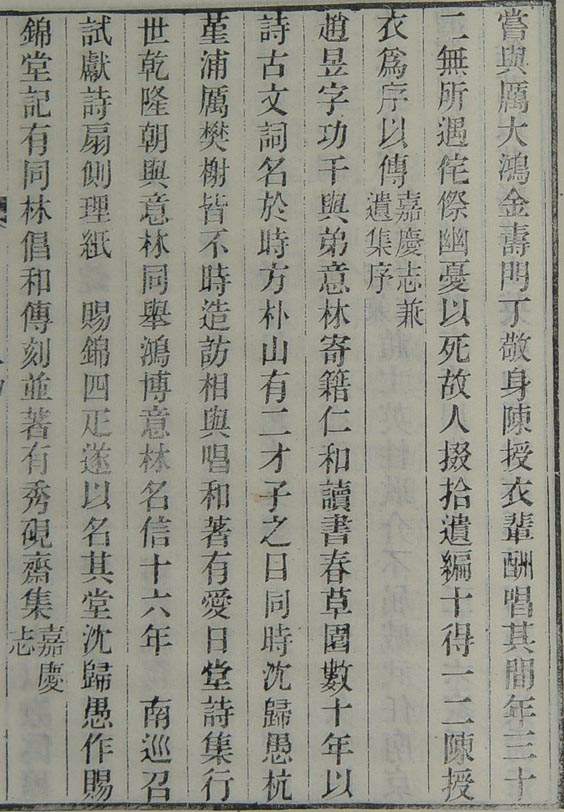 嘗與厲大鴻金壽門丁敬身陳授衣輩酬唱其間年三十
二無所遇侘傺幽憂以死故人掇拾遺編十得一二陳授
衣爲序以傳嘉慶志兼遺集序
趙昱字功千與弟意林寄籍仁和讀書春草園數十年以
詩古文詞名於時方朴山有二才子之目同時沈歸愚杭
堇浦厲樊榭皆不時造訪相與唱和著有愛日堂詩集行
世乾隆朝與意林同舉鴻博意林名信十六年 南巡召
試獻詩扇側理紙 賜錦四疋遂以名其堂沈歸愚作賜
錦堂記有同林倡和傳刻並著有秀硯齋集嘉慶志